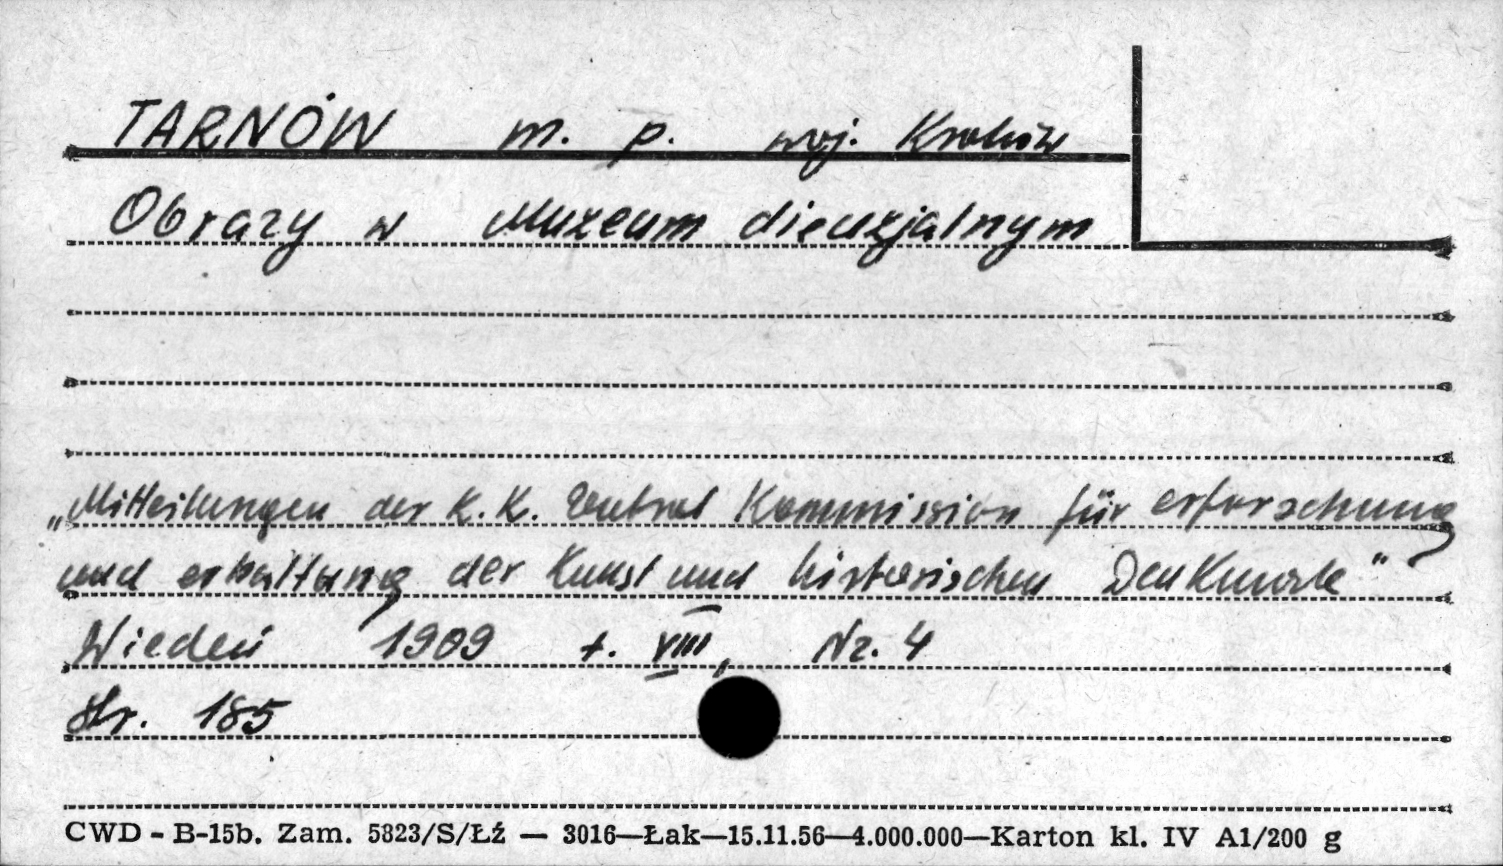 TARNÓW m. p. woj. Kraków
Obrazy w Muzeum diecezjalnym
„Mitteilungen der K. K. Zentral Kommission für erforschung
und erhaltung der Kunst und historischen Denkmale"
Wiedeń 1909 t. VIII, Nr. 4
Str. 185
CWD - B-15b. Zam. 5823/S/Łź — 3016—Łak—15.11.56—4.000.000—Karton kl. IV A1/200 g